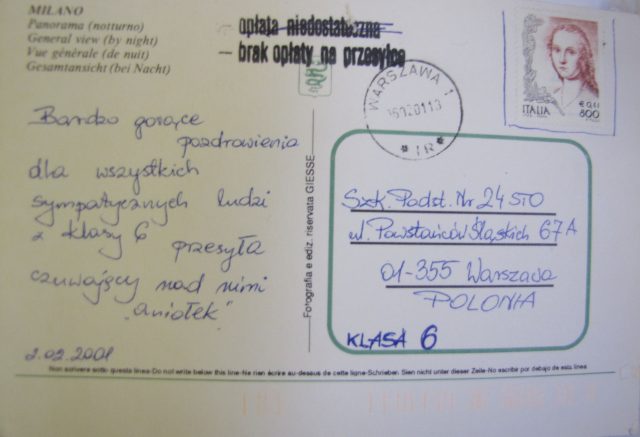 MILANO
Panorama (notturno)
General view (by night)
Vue générale (de nuit)
Gesamtansicht (bei Nacht)
- opłata niedostateczna
- brak opłaty na przesyłce
WARSZAWA 1
* 1R *
ITALIA
€ 0,41
800
Bardzo gorące
pozdrowienia
dla wszystkich
sympatycznych ludzi
z klasy 6
przesyła
czuwający nad nimi
"aniołek"
2.02.2001
Fotografia e ediz. riservata GIESSE
Szk. Podst. Nr 24 STO
ul. Powstańców Śląskich 67A
01-355 Warszawa
POLONIA
KLASA 6
Non scrivere sotto questa linea-Do not write below this line-Ne rien écrire au-dessus de cette ligne-Schrieben. Sien nicht unter dieser Zeile-No escribir por debajo de esta linea